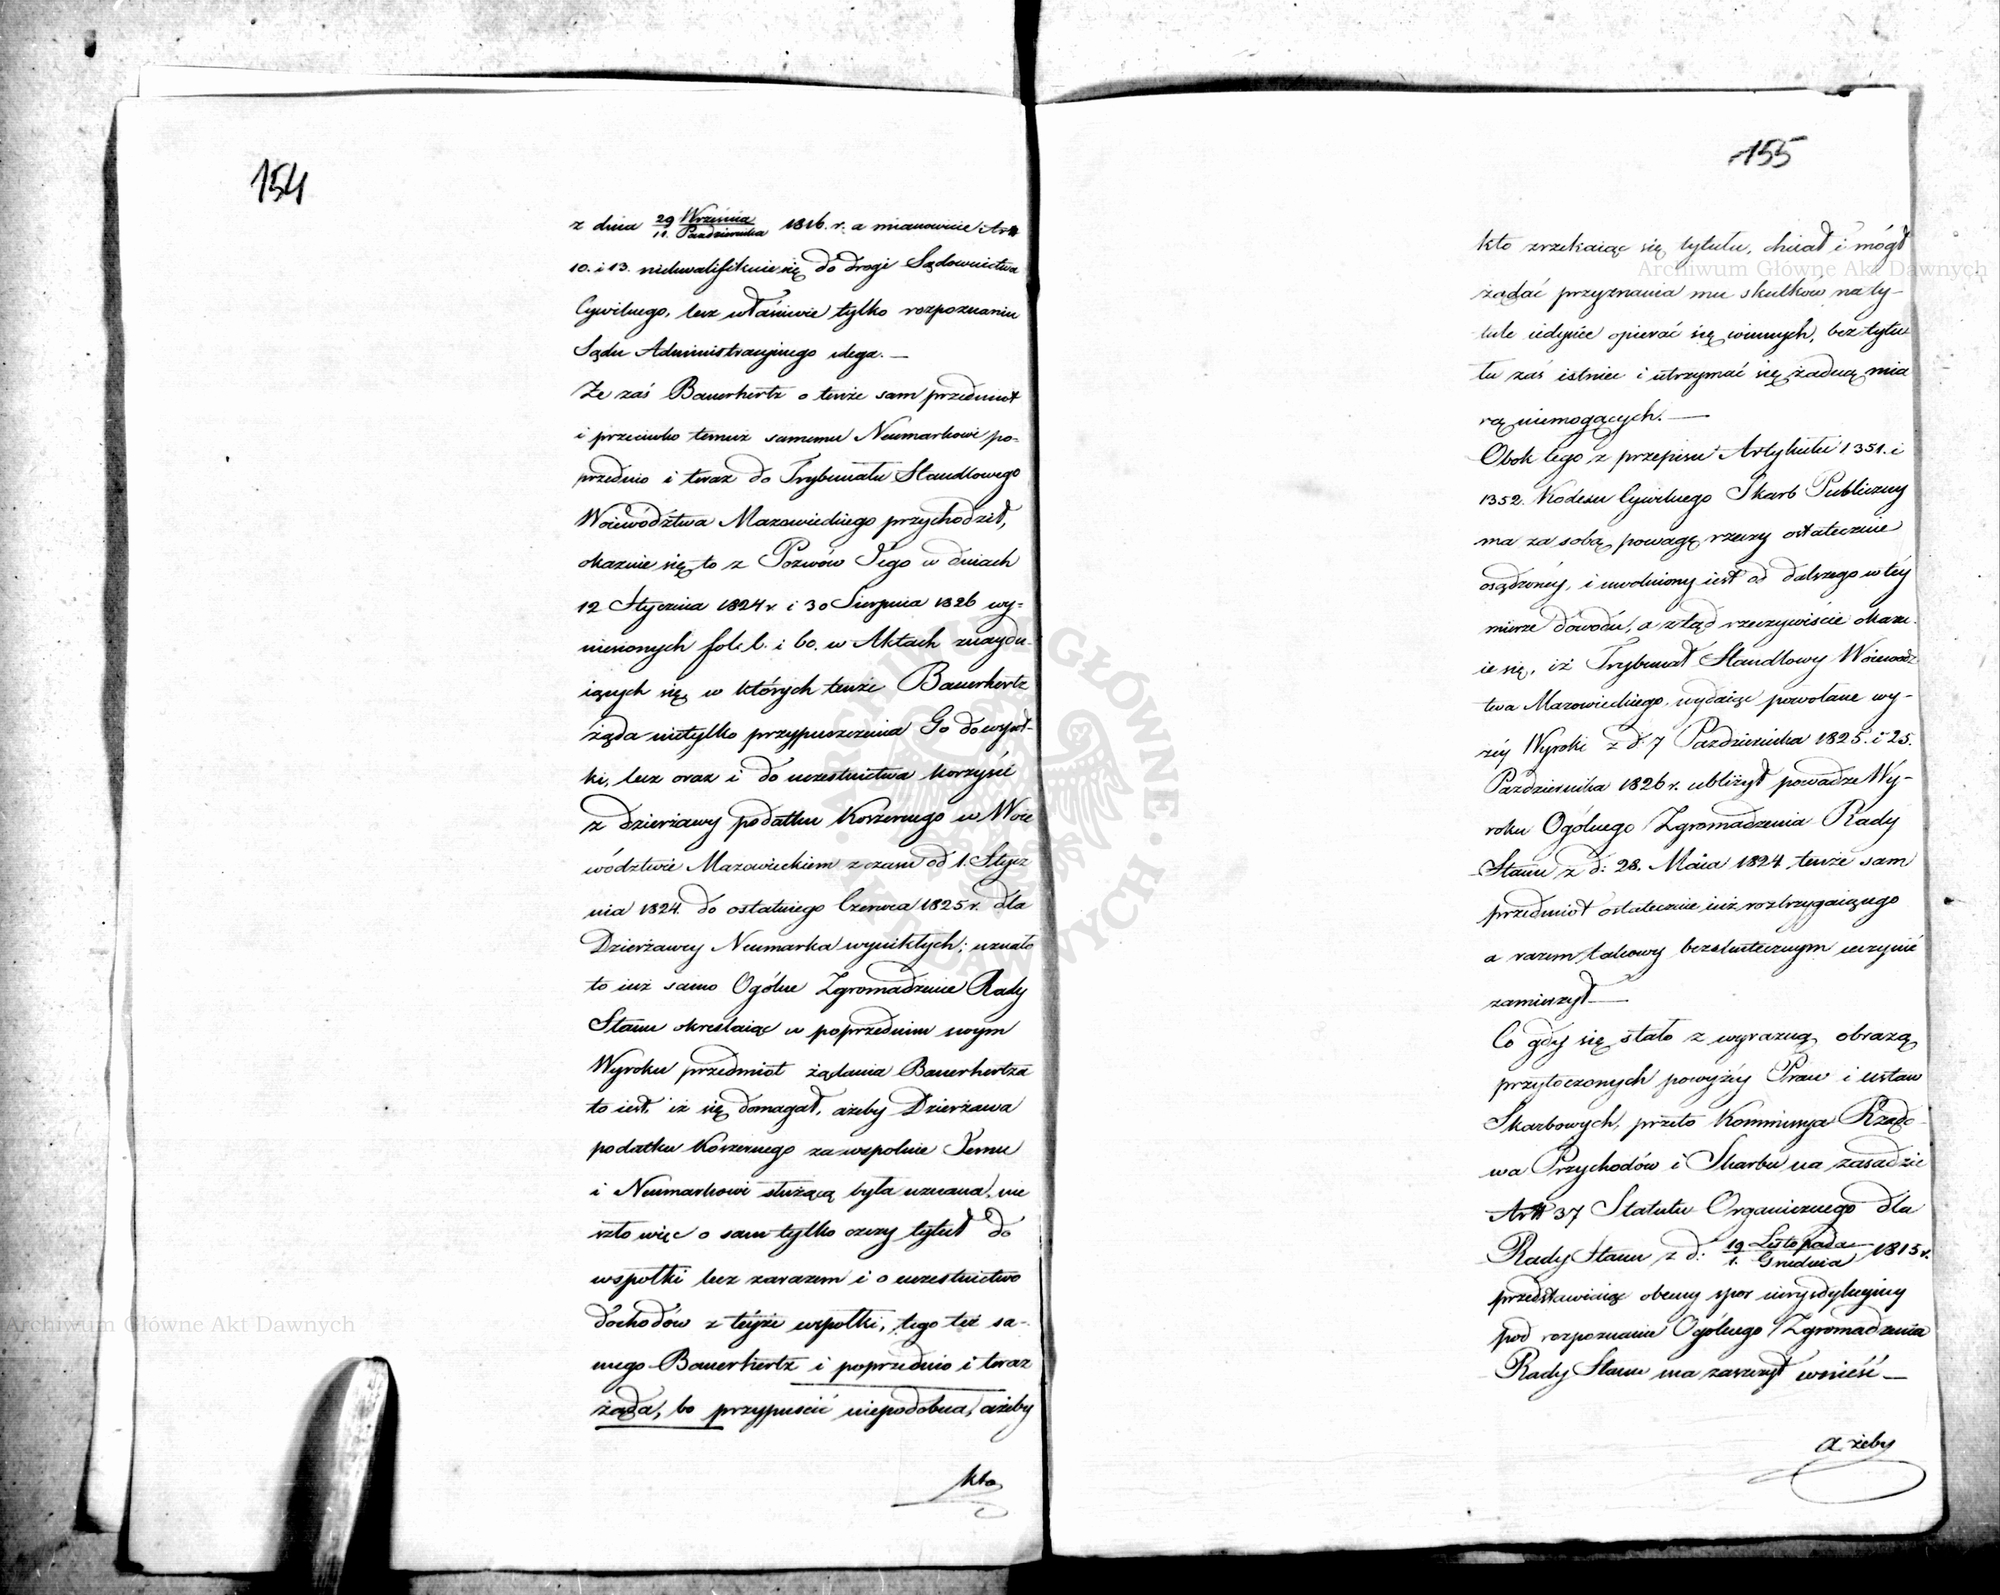 154
z dnia 29 Września / 11. Października 1816. r. a mianowicie Artt
10. i 13. niekwalifikuie się do drogi Sądownictwa
Cywilnego, lecz właściwie tylko rozpoznaniu
Sądu Administracyjnego ulega. —
Że zaś Bauerhertz o tenże sam przedmiot
i przeciwko temuż samemu Neumarkowi po=
przednio i teraz do Trybunału Handlowego
Woiewództwa Mazowieckiego przychodził,
okazuie się to z Pozwów Jego w dniach
12 Stycznia 1824 r. i 30 Sierpnia 1826 wy=
niesionych fol: 6. i 60. w Aktach znaydu
iących się, w których tenże Bauerhertz
żąda nietylko przypuszczenia Go do wspoł-
ki, lecz oraz i do uczestnictwa korzyści
z dzierżawy podatku Koszernego w Woie
wództwie Mazowieckiem z czasu od 1. Stycz
nia 1824. do ostatniego Czerwca 1825 r. dla
Dzierżawcy Neumarka wynikłych; uznało
to iuż samo Ogólne Zgromadzenie Rady
Stanu okreslaiąc w poprzednim swym
Wyroku przedmiot żądania Bauerhertza
to iest, iż się domagał, ażeby Dzierżawa
podatku Koszernego za wspolnie Jemu
i Neumarkowi służącą była uznana, nie
szło więc o sam tylko czczy tytuł do
wspołki lecz zarazem i o uczestnictwo
dochodów z teyże wspołki, tego też sa-
mego Bauerhertz i poprzednio i teraz
żąda, bo przypuscić niepodobna, ażeby
kto
155
kto zrzekaiąc się tytułu, chciał i mógł
żądać przyznania mu skutków na ty-
tule iedynie opierać się winnych, bez tytu
łu zaś istnieć i utrzymać się żadną mia
rą niemogących. —
Obok tego z przepisu Artykułu 1351. i
1352. Kodexu Cywilnego Skarb Publiczny
ma za sobą powagę rzeczy ostatecznie
osądzonéy, i uwolniony iest od dalszego w tey
mierze dowodu, a ztąd rzeczywiście okazu-
ie się, iż Trybunał Handlowy Woiewodz
twa Mazowieckiego, wydaiąc powołane wy-
żéy Wyroki z d. 7 Października 1825. i 25.
Października 1826 r. ubliżył powadze Wy-
roku Ogólnego Zgromadzenia Rady
Stanu z d: 28. Maia 1824. tenże sam
przedmiot ostatecznie iuż roztrzygaiącego
a razem takowy bezskutecznym uczynić
zamierzył —
Co gdy się stało z wyrazną obrazą
przytoczonych powyżéy Praw i ustaw
Skarbowych, przeto Kommissya Rządo-
wa Przychodów i Skarbu na zasadzie
Artt 37 Statutu Organicznego dla
Rady Stanu z d: 19 Listopada / 1. Grudnia 1815 r.
przedstawiaiąc obecny spor iurysdykcyiny
pod rozpoznanie Ogólnego Zgromadzenia
Rady Stanu ma zaszczyt wnieść —
ażeby
Archiwum Główne Akt Dawnych
Archiwum Główne Akt Dawnych
ARCHIWUM GŁÓWNE AKT DAWNYCH